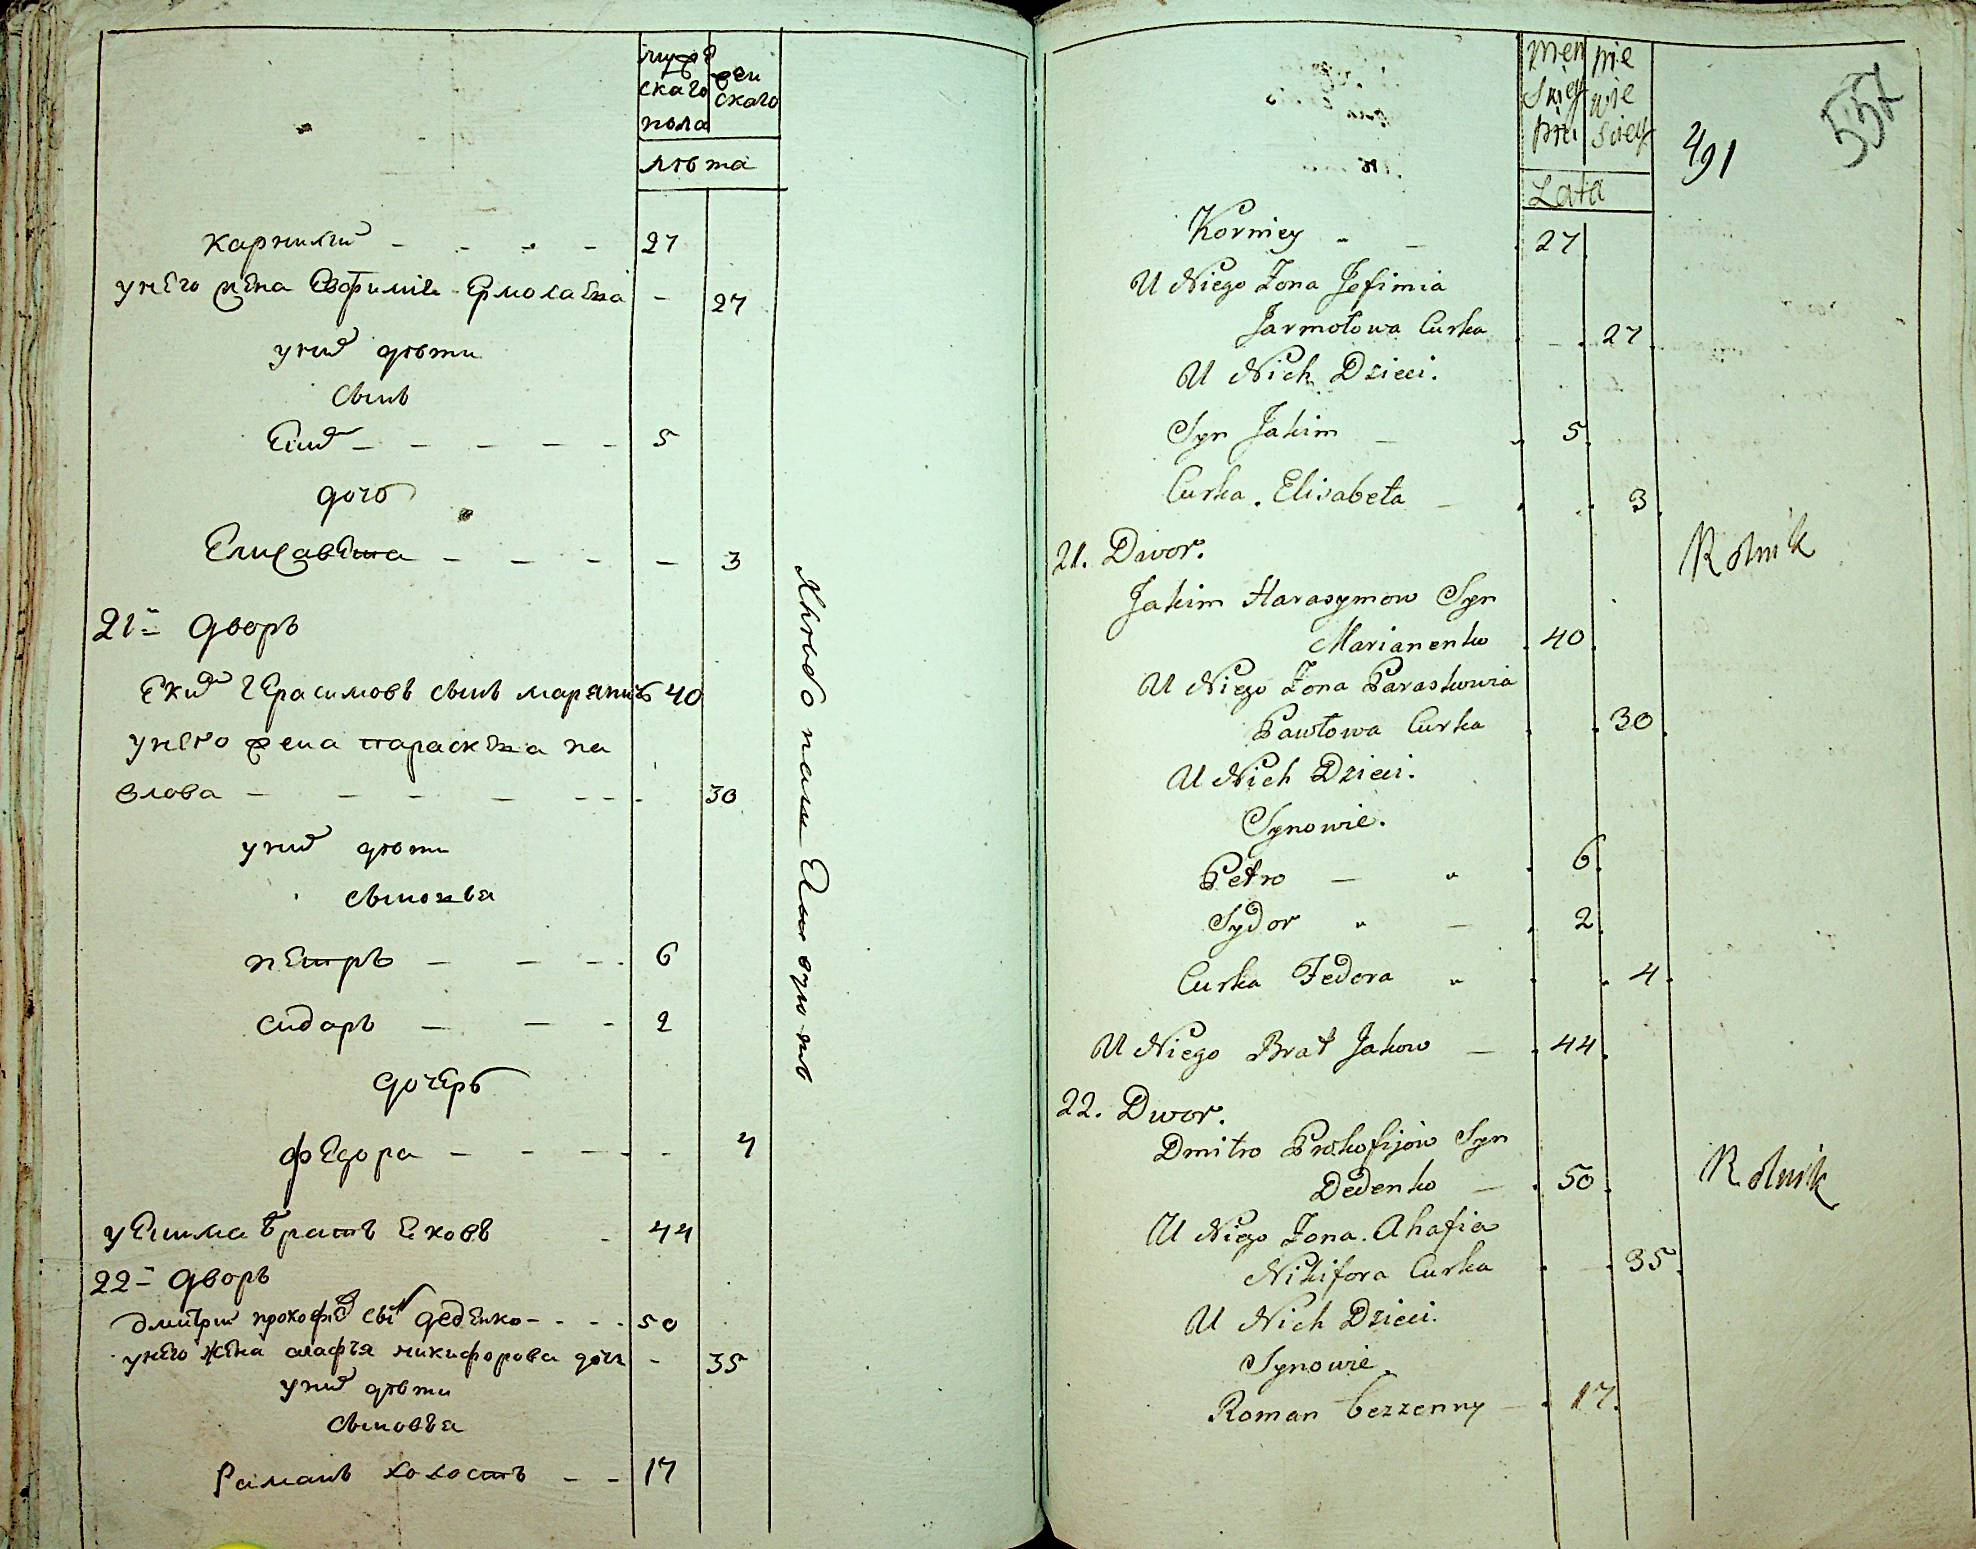 мужескаго пола
женскаго
лѣта
карнилий 27
унего жена Евфимия Ермолаева 27
уних дѣти
сынъ
Еким 5
дочь
Елисавета 3
21й дворъ
Еким герасимовъ сынъ 40
унего жена параскева па
влова 30
уних дѣти
сыновья
петръ 6
сидаръ 2
дочерь
федора 4
уекима братъ Яковъ 44
22й дворъ
дмитрий прокофиев сын деденко 50
унего жена агафъя никифорова дочь 35
уних дѣти
сыновъя
Раманъ холостъ 17
хлѣбо пашец
męskiey płci
niewieściey
Lata
491
557
Korniey 27
U Niego Żona Jefimia
Jarmołowa Curka 27
U Nich Dzieci.
Syn Jakim 5
Curka. Elisabeta 3
21. Dwor. Rolnik
Jakim Harasymow Syn
Marianenko 40
U Niego Żona Paraskowia
Pawłowa Curka 30
U Nich Dzieci.
Synowie.
Petro 6
Sydor 2
Curka Fedora 4
U Niego Brat Jakow 44
22. Dwor.
Dmitro Prokofijow Syn
Dedenko 50 Rolnik
U Niego Żona. Ahafia
Nikifora Curka 35
U Nich Dzieci.
Synowie.
Roman bezzenny 17